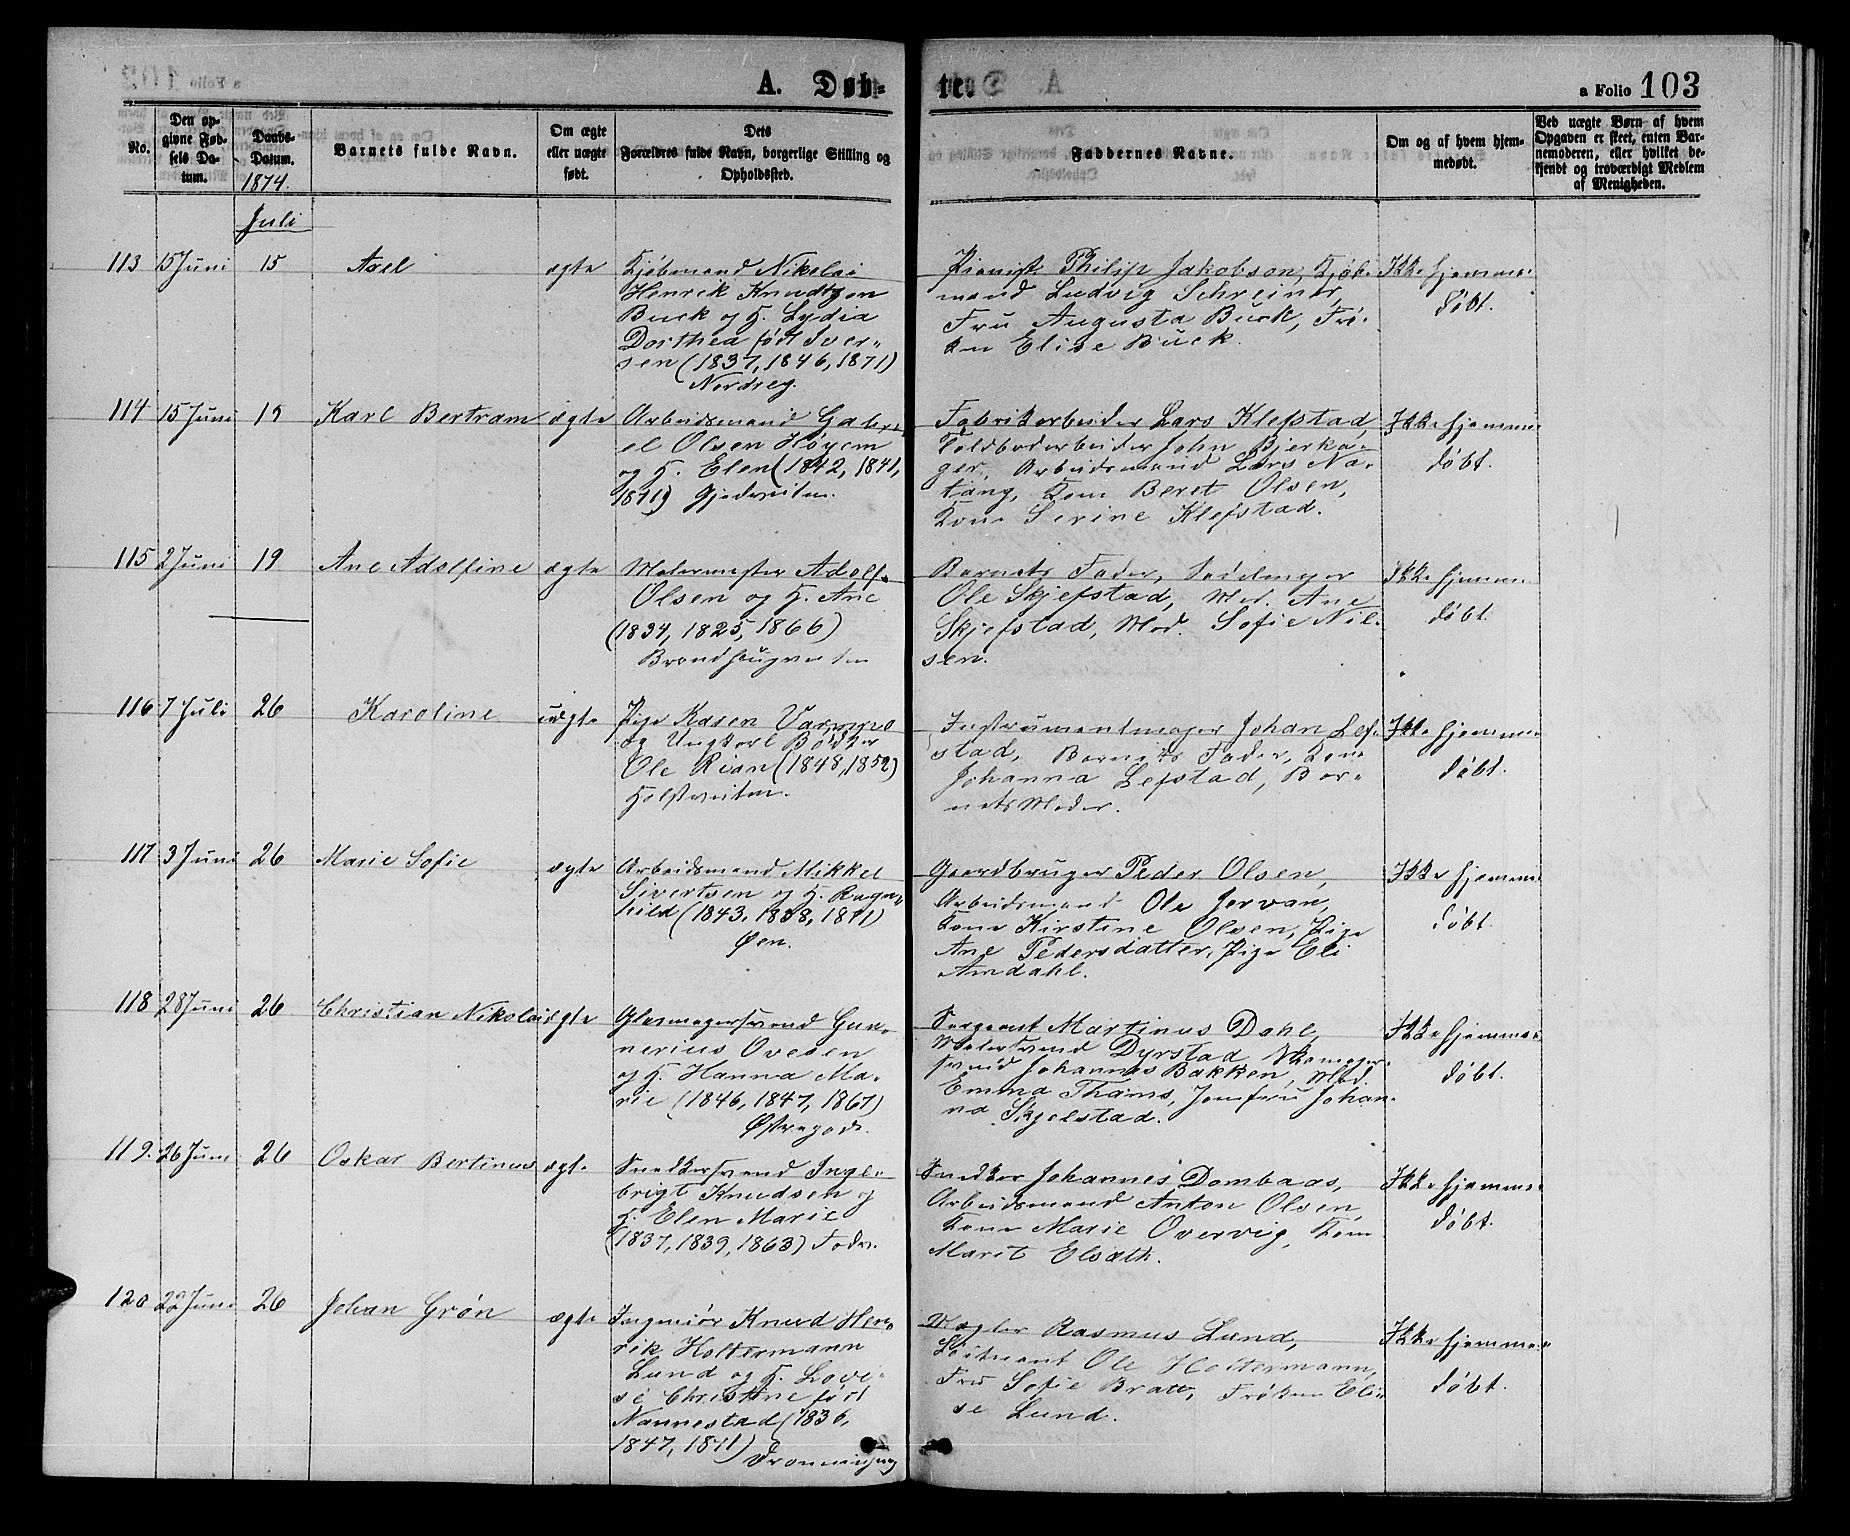 A. Døb-
te.
a Folio 103
No.
Den op-
givne Fød-
sels Da-
tum.
Daabs-
Datum.
1874.
Barnets fulde Navn.
Om ægte
eller uægte
født.
Dets
Forældres fulde Navn, borgerlige Stilling og
Opholdssted.
Faddernes Navne.
Om og af hvem hjem-
medøbt.
Ved uægte Børn af hvem
Opgaven er skeet, enten Bar-
nemoderen, eller hvilket be-
kjendt og troværdigt Medlem
af Menigheden.
Juli
113 15 Juni 15 Axel ægte
Kjøbmand Nikolai
Henrik Knudtzon
Buck og H. Lydia
Dorthea født Iver-
sen (1837, 1846, 1871)
Nordreg.
Pianist Philip Jakobson, Kjøb-
mand Ludvig Schreiner,
Fru Augusta Buck, Frø-
ken Elise Buck.
Ikke hjemme-
døbt.
114 15 Juni 19 Karl Bertram ægte
Arbeidsmand Gabri-
el Olsen Høyem
og H. Elen (1842, 1841,
1871) Gjedveiten.
Fabrikarbeider Lars Klefstad,
Toldbodarbeider John Bjerka-
ger, Arbeidsmand Lars Na-
tang, Kone Beret Olsen,
Kone Serine Klefstad.
Ikke hjemme-
døbt.
115 2 Juni 19 Ane Adolfine ægte
Malermester Adolf
Olsen og H. Ane
(1834, 1825, 1866)
Brandhaugveiten
Barnets Fader,
Ole Skjefstad, Mad. Ane
Skjefstad, Mad. Sofie Niel-
sen.
Ikke hjemme-
døbt.
116 7 Juli 26 Karoline uægte
Pige Karen
og Ungkarl Bødker
Ole Rian (1848, 1852)
Holstveiten.
Instrumentmager Johan Lef-
stad, Barnets Fader, Kone
Johanna Lefstad, Bar-
nets Moder.
Ikke hjemme-
døbt.
117 3 Juni 26 Marie Sofie ægte
Arbeidsmand Mikkel
Sivertsen og H. Ragn-
hild (1843, 1838, 1871)
Øen.
Gaardbruger Peder Olsen,
Arbeidsmand Ole Jervan,
Kone Kirstine Olsen, Pige
Ane Pedersdatter, Pige Eli
Amdahl.
Ikke hjemme-
døbt.
118 28 Juni 26 Christian Nikolai ægte
Glasmagersvend Gun-
nerius Ovesen
og H. Hanna Ma-
rie (1846, 1847, 1867)
Østregade.
Sergeant Martinus Dahl,
Malersvend Dyrstad, Skomager-
svend Johannes Bakken, Mad.
Emma Thams, Jomfru Johan-
na Skjelstad.
Ikke hjemme-
døbt.
119. 26 Juni 26 Oskar Bertinus ægte
Snedkersvend Inge-
brigt Knudsen og
H. Elen Marie
(1837, 1839, 1863)
Snedker Johannes Dombaas,
Arbeidsmand Anton Olsen,
Kone Marie Overvig, Kone
Marit Elsæth.
Ikke hjemme-
døbt.
120 22 Juni 26 Johan Grøn ægte
Ingeniør Knud Hen-
rik Holtermann
Lund og H. Lovi-
se Christine født
Nannestad (1836,
1847, 1871)
Dronningensg
Mægler Rasmus Lund,
Løitnant Ole Holtermann,
Fru Sofie Bratt, Frøken Eli-
se Lund.
Ikke hjemme-
døbt.